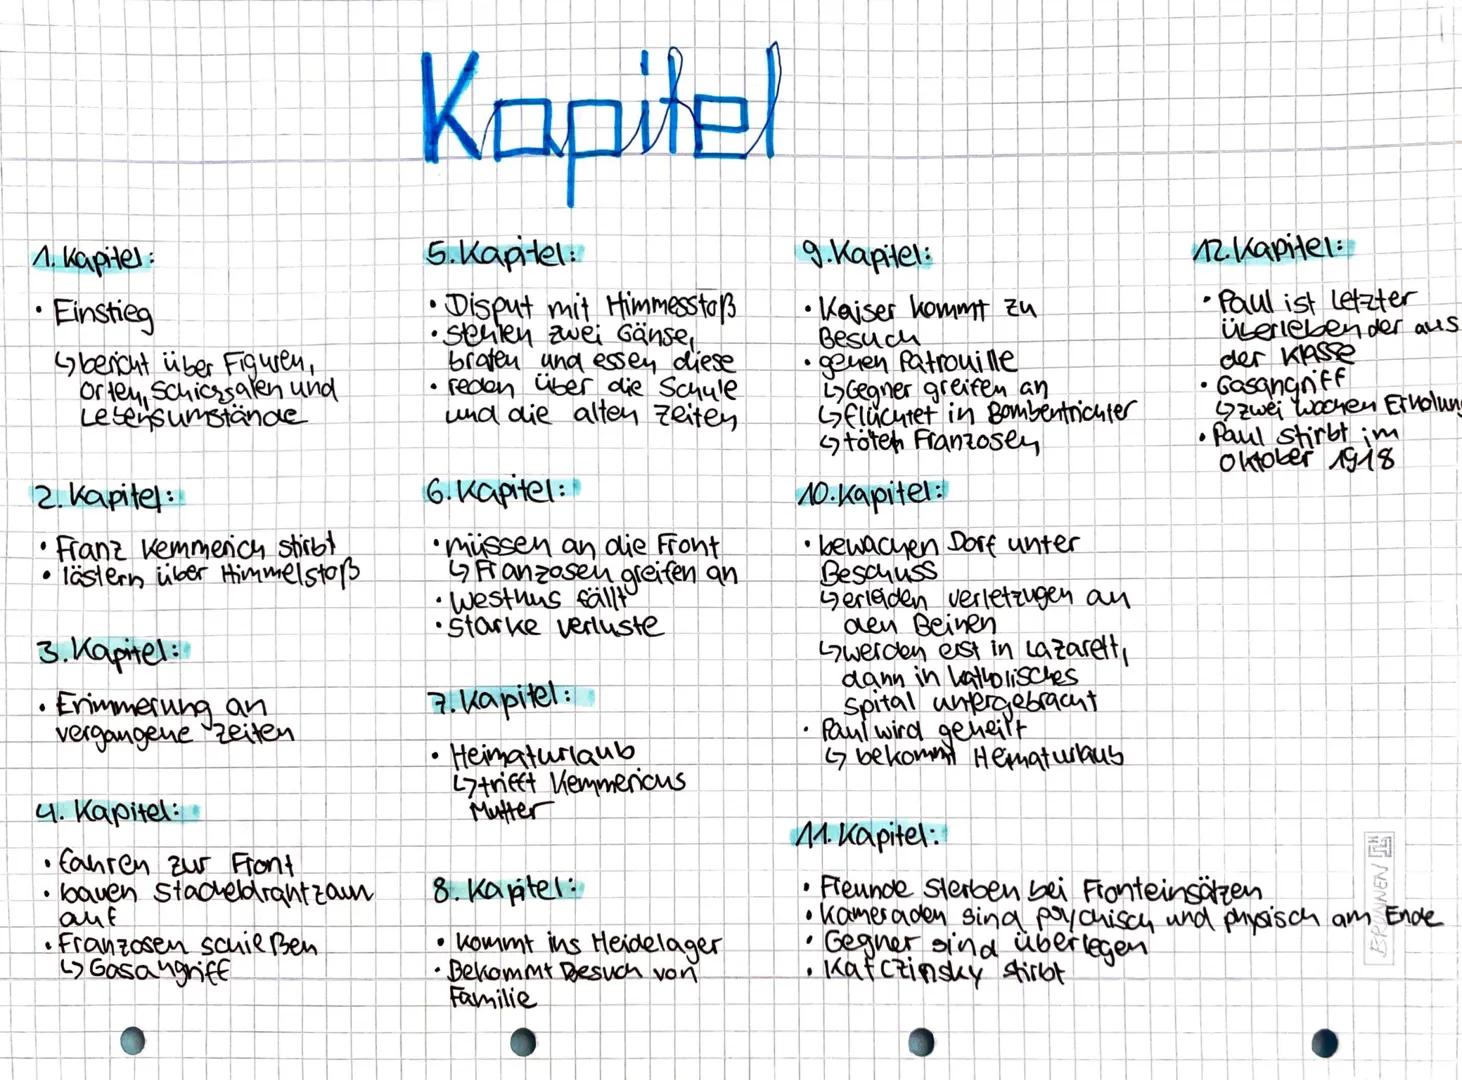 Kapitel
1. Kapitel:
• Einstieg
↳ bericht über Figuren,
Orten, Schicksalen und
Lebensumstände
2. Kapitel:
• Franz Kemmerich stirbt
• lästern über Himmelstoß
3. Kapitel:
• Erimmerung an
vergangene Zeiten
4. Kapitel:
• fahren zur Front
• bauen Stacheldrahtzaun
auf
• Franzosen schießen
↳ Gasangriff
5. Kapitel:
• Disput mit Himmesstoß
• stehlen zwei Gänse,
braten und essen diese
• reden über die Schule
und die alten Zeiten
6. Kapitel:
• müssen an die Front
↳ Franzosen greifen an
• Westhus fällt
• starke Verluste
7. Kapitel:
• Heimaturlaub
↳ trifft Kemmerichs
Mutter
8. Kapitel:
• kommt ins Heidelager
• Bekommt Besuch von
Familie
9. Kapitel:
• Kaiser kommt zu
Besuch
• gehen Patrouille
↳ Gegner greifen an
↳ flüchtet in Bombentrichter
↳ töten Franzosen
10. Kapitel:
• bewachen Dorf unter
Beschuss
↳ erleiden verletzugen an
den Beinen
↳ werden erst in Lazarett,
dann in katholisches
Spital untergebracht
• Paul wird geheilt
↳ bekommt Heimaturlaub
11. Kapitel:
• Freunde sterben bei Fronteinsätzen
• Kameraden sind psychisch und physisch am Ende
• Gegner sind überlegen
• Katczinsky stirbt
12. Kapitel:
• Paul ist letzter
überlebender aus
der Klasse
• Gasangriff
↳ zwei Wochen Erholung
• Paul stirbt im
Oktober 1918
BRUNNEN